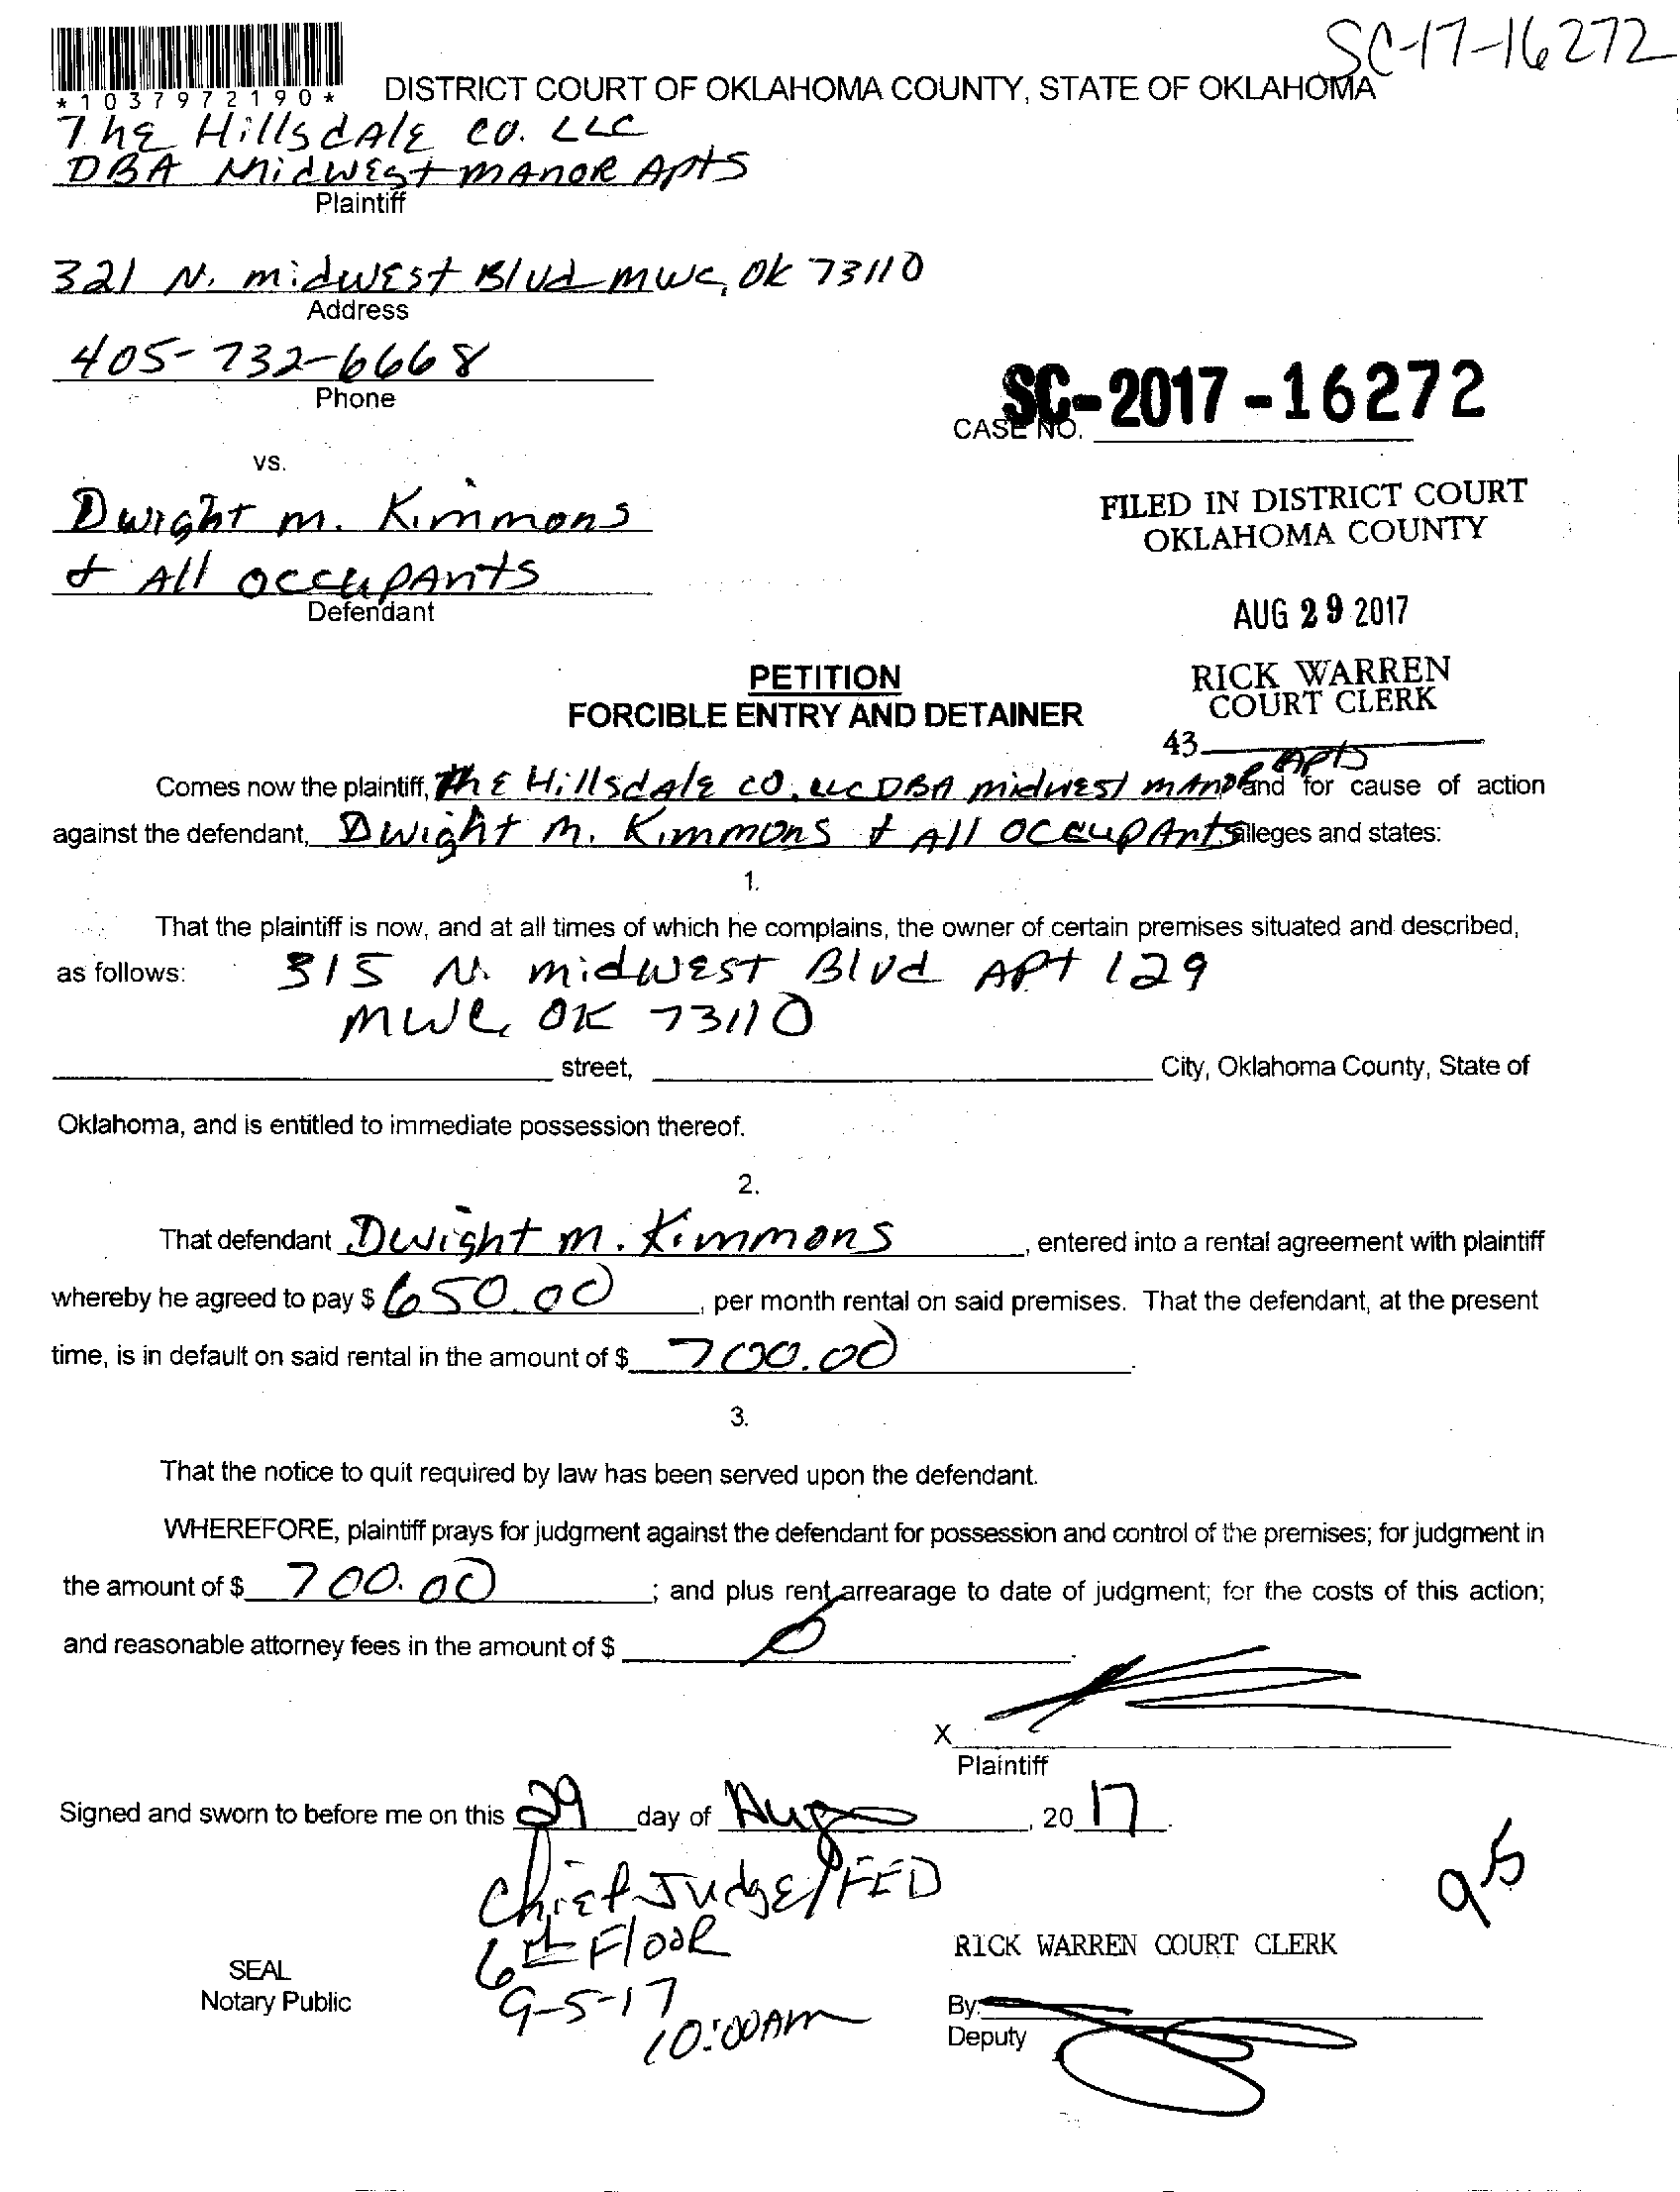 SC-17-16272
*1037972190*
DISTRICT COURT OF OKLAHOMA COUNTY, STATE OF OKLAHOMA
The Hillsdale Co. LLC
DBA Midwest Manor Apts
Plaintiff
321 N. Midwest Blvd MWC, OK 73110
Address
405-732-6668
Phone
SC-2017-16272
CASE NO.
vs.
FILED IN DISTRICT COURT
OKLAHOMA COUNTY
Dwight M. Kimmons
& All Occupants
Defendant
AUG 29 2017
RICK WARREN
COURT CLERK
43
PETITION
FORCIBLE ENTRY AND DETAINER
Comes now the plaintiff, The Hillsdale Co. LLC DBA Midwest Manor Apts and for cause of action
against the defendant, Dwight M. Kimmons & All Occupants alleges and states:
1.
That the plaintiff is now, and at all times of which he complains, the owner of certain premises situated and described,
as follows: 315 N. Midwest Blvd Apt 129
MWC, OK 73110
street, City, Oklahoma County, State of
Oklahoma, and is entitled to immediate possession thereof.
2.
That defendant Dwight M. Kimmons, entered into a rental agreement with plaintiff
whereby he agreed to pay $ 650.00, per month rental on said premises. That the defendant, at the present
time, is in default on said rental in the amount of $ 700.00.
3.
That the notice to quit required by law has been served upon the defendant.
WHEREFORE, plaintiff prays for judgment against the defendant for possession and control of the premises; for judgment in
the amount of $ 700.00; and plus rent arrearage to date of judgment; for the costs of this action;
and reasonable attorney fees in the amount of $ 0.
X
Plaintiff
Signed and sworn to before me on this 29 day of Aug, 2017.
Chief Judge/FED
6th Floor
9-5-17
10:00AM
95
SEAL
Notary Public
RICK WARREN COURT CLERK
By:
Deputy